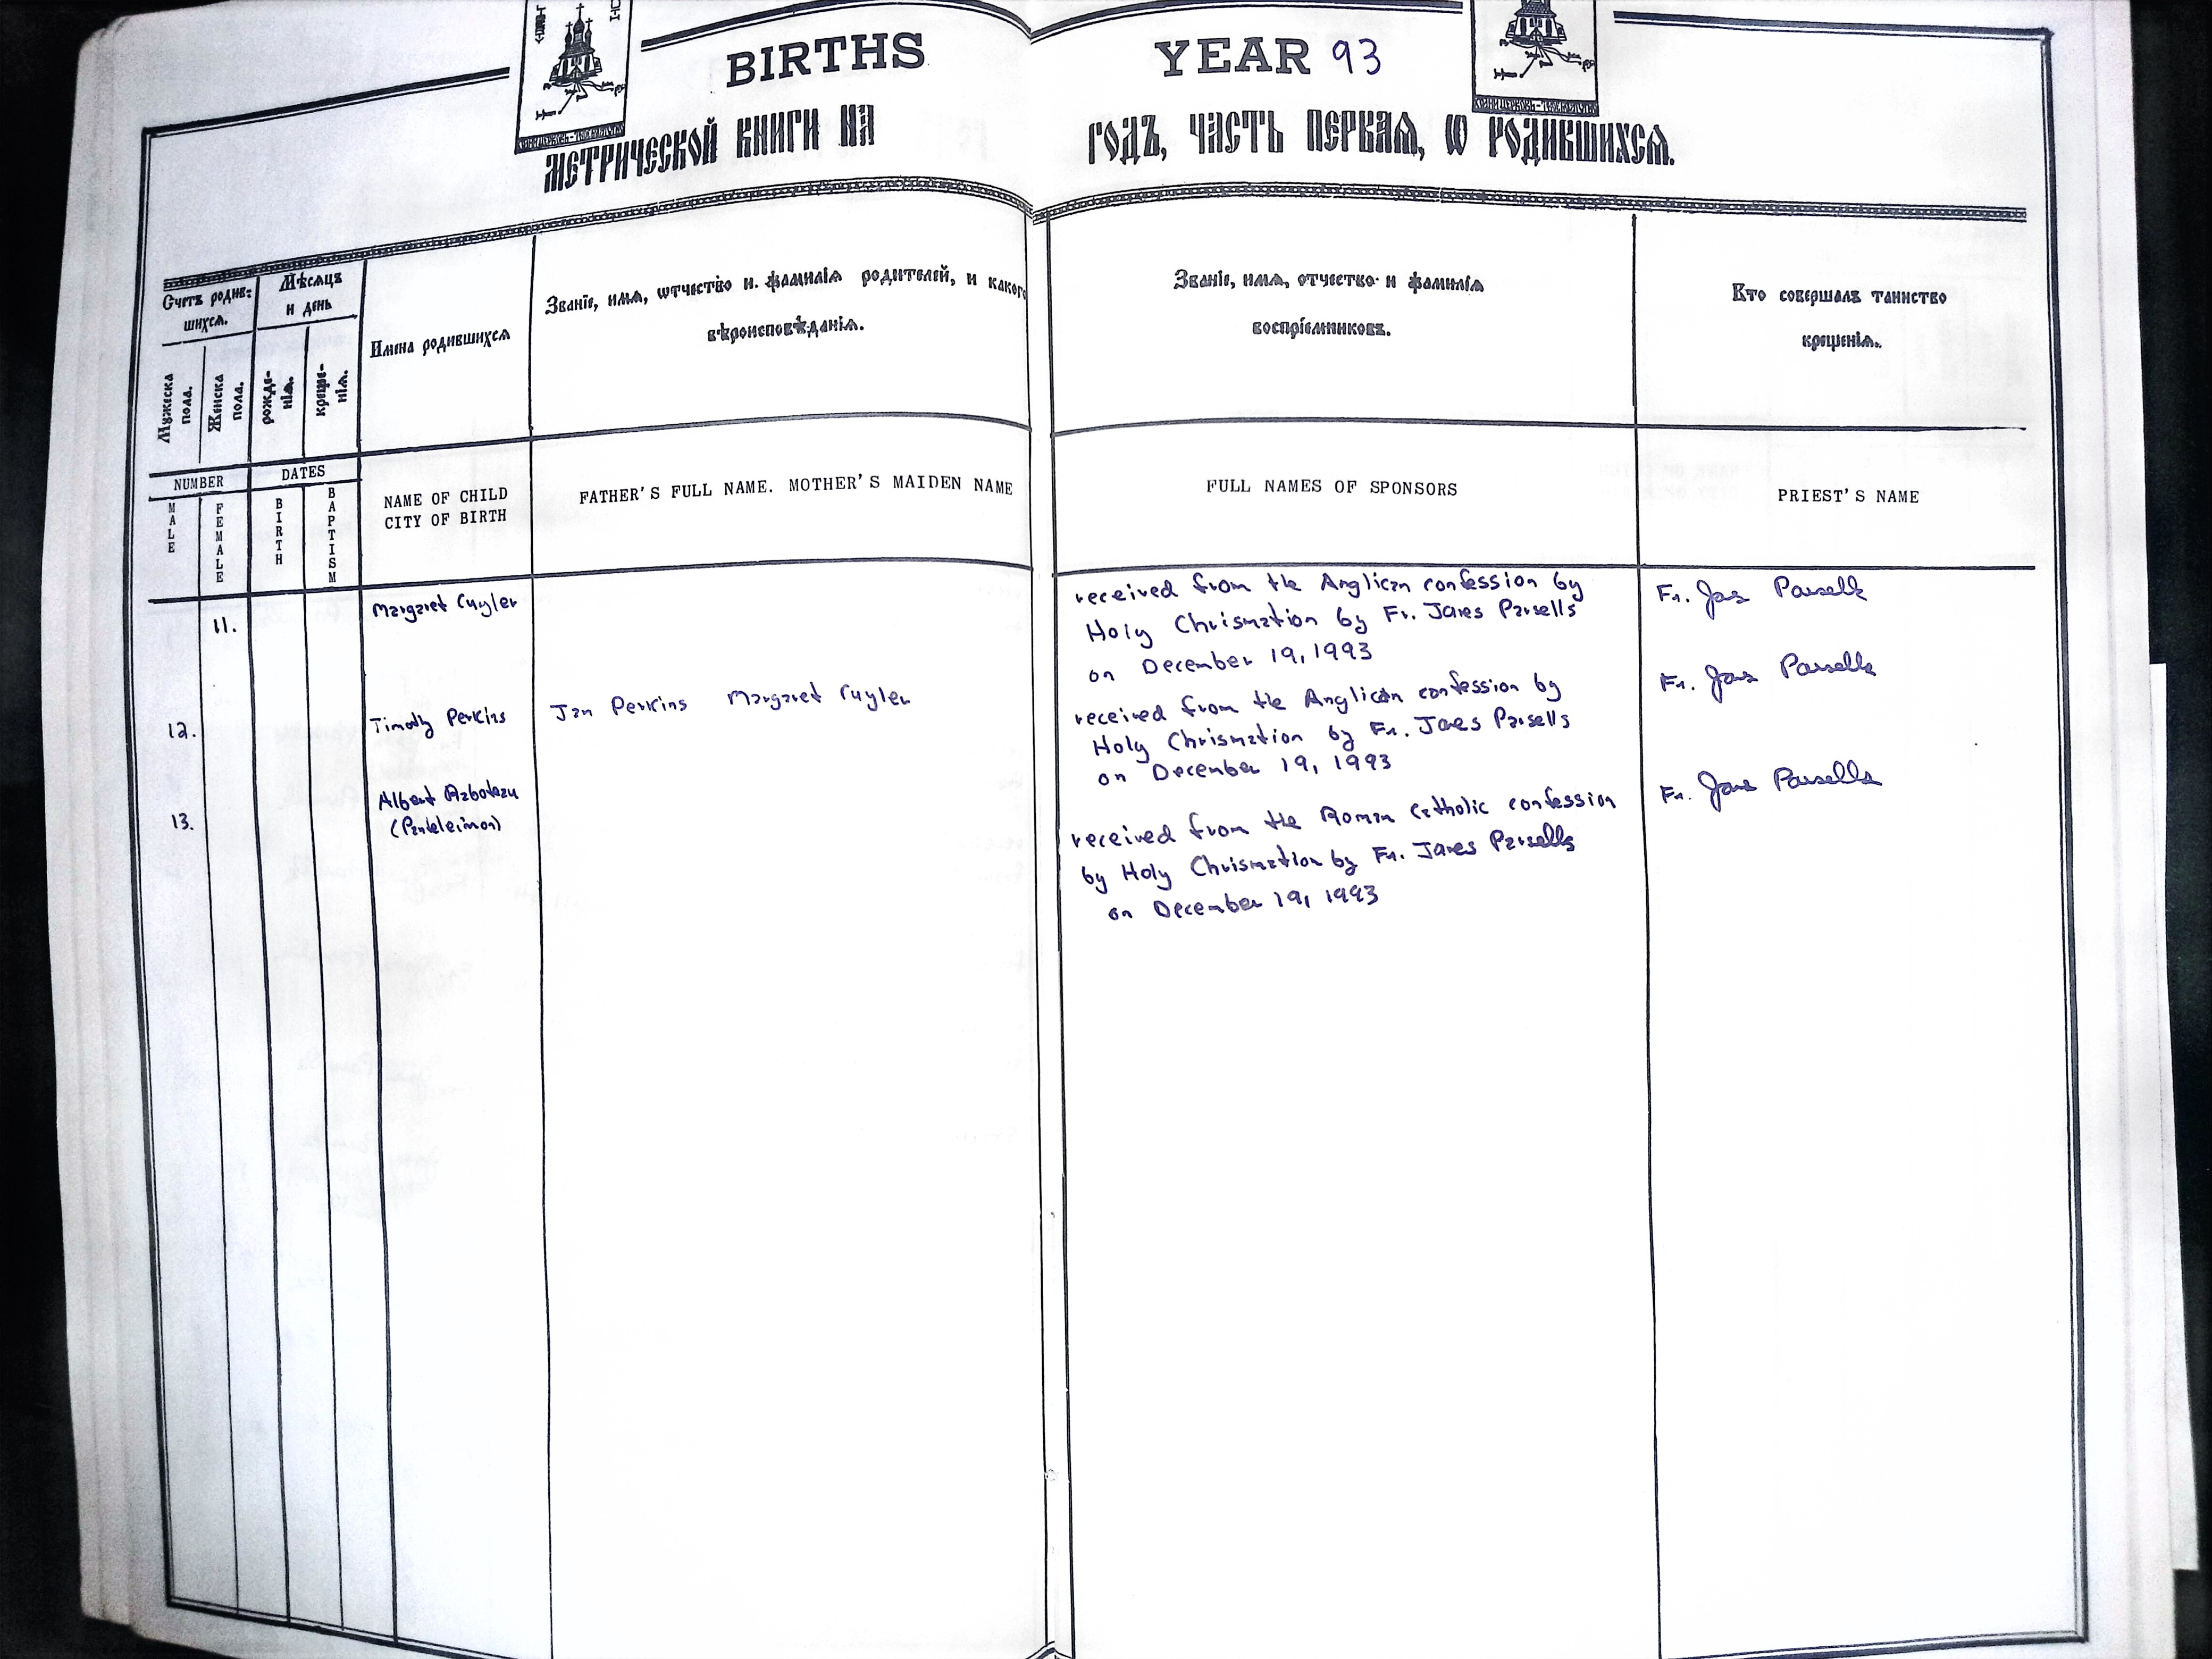 BIRTHS YEAR 93
МЕТРИЧЕСКОЙ КНИГИ НА ГОДЪ, ЧАСТЬ ПЕРВАѦ, Ѡ РОДИВШИХСѦ.
Счетъ родив-
шихсѧ.
Мѣсѧцъ
и день
Мужеска
пола.
Женска
пола.
рожде-
нїѧ.
креще-
нїѧ.
Имена родившихсѧ
Званїе, имѧ, ѡтчество и фамилїѧ родителей, и какого
вѣроисповѣданїѧ.
Званїе, имѧ, отчество и фамилїѧ
воспрїемниковъ.
Кто совершалъ таинство
крещенїѧ.
NUMBER
DATES
MALE
FEMALE
BIRTH
BAPTISM
NAME OF CHILD
CITY OF BIRTH
FATHER'S FULL NAME. MOTHER'S MAIDEN NAME
FULL NAMES OF SPONSORS
PRIEST'S NAME
11.
Margaret Cuyler
received from the Anglican confession by
Holy Chrismation by Fr. James Parsells
on December 19, 1993
Fr. James Parsells
12.
Timothy Perkins
Jan Perkins Margaret Cuyler
received from the Anglican confession by
Holy Chrismation by Fr. James Parsells
on December 19, 1993
Fr. James Parsells
13.
Albert
(Panteleimon)
received from the Roman Catholic confession
by Holy Chrismation by Fr. James Parsells
on December 19, 1993
Fr. James Parsells